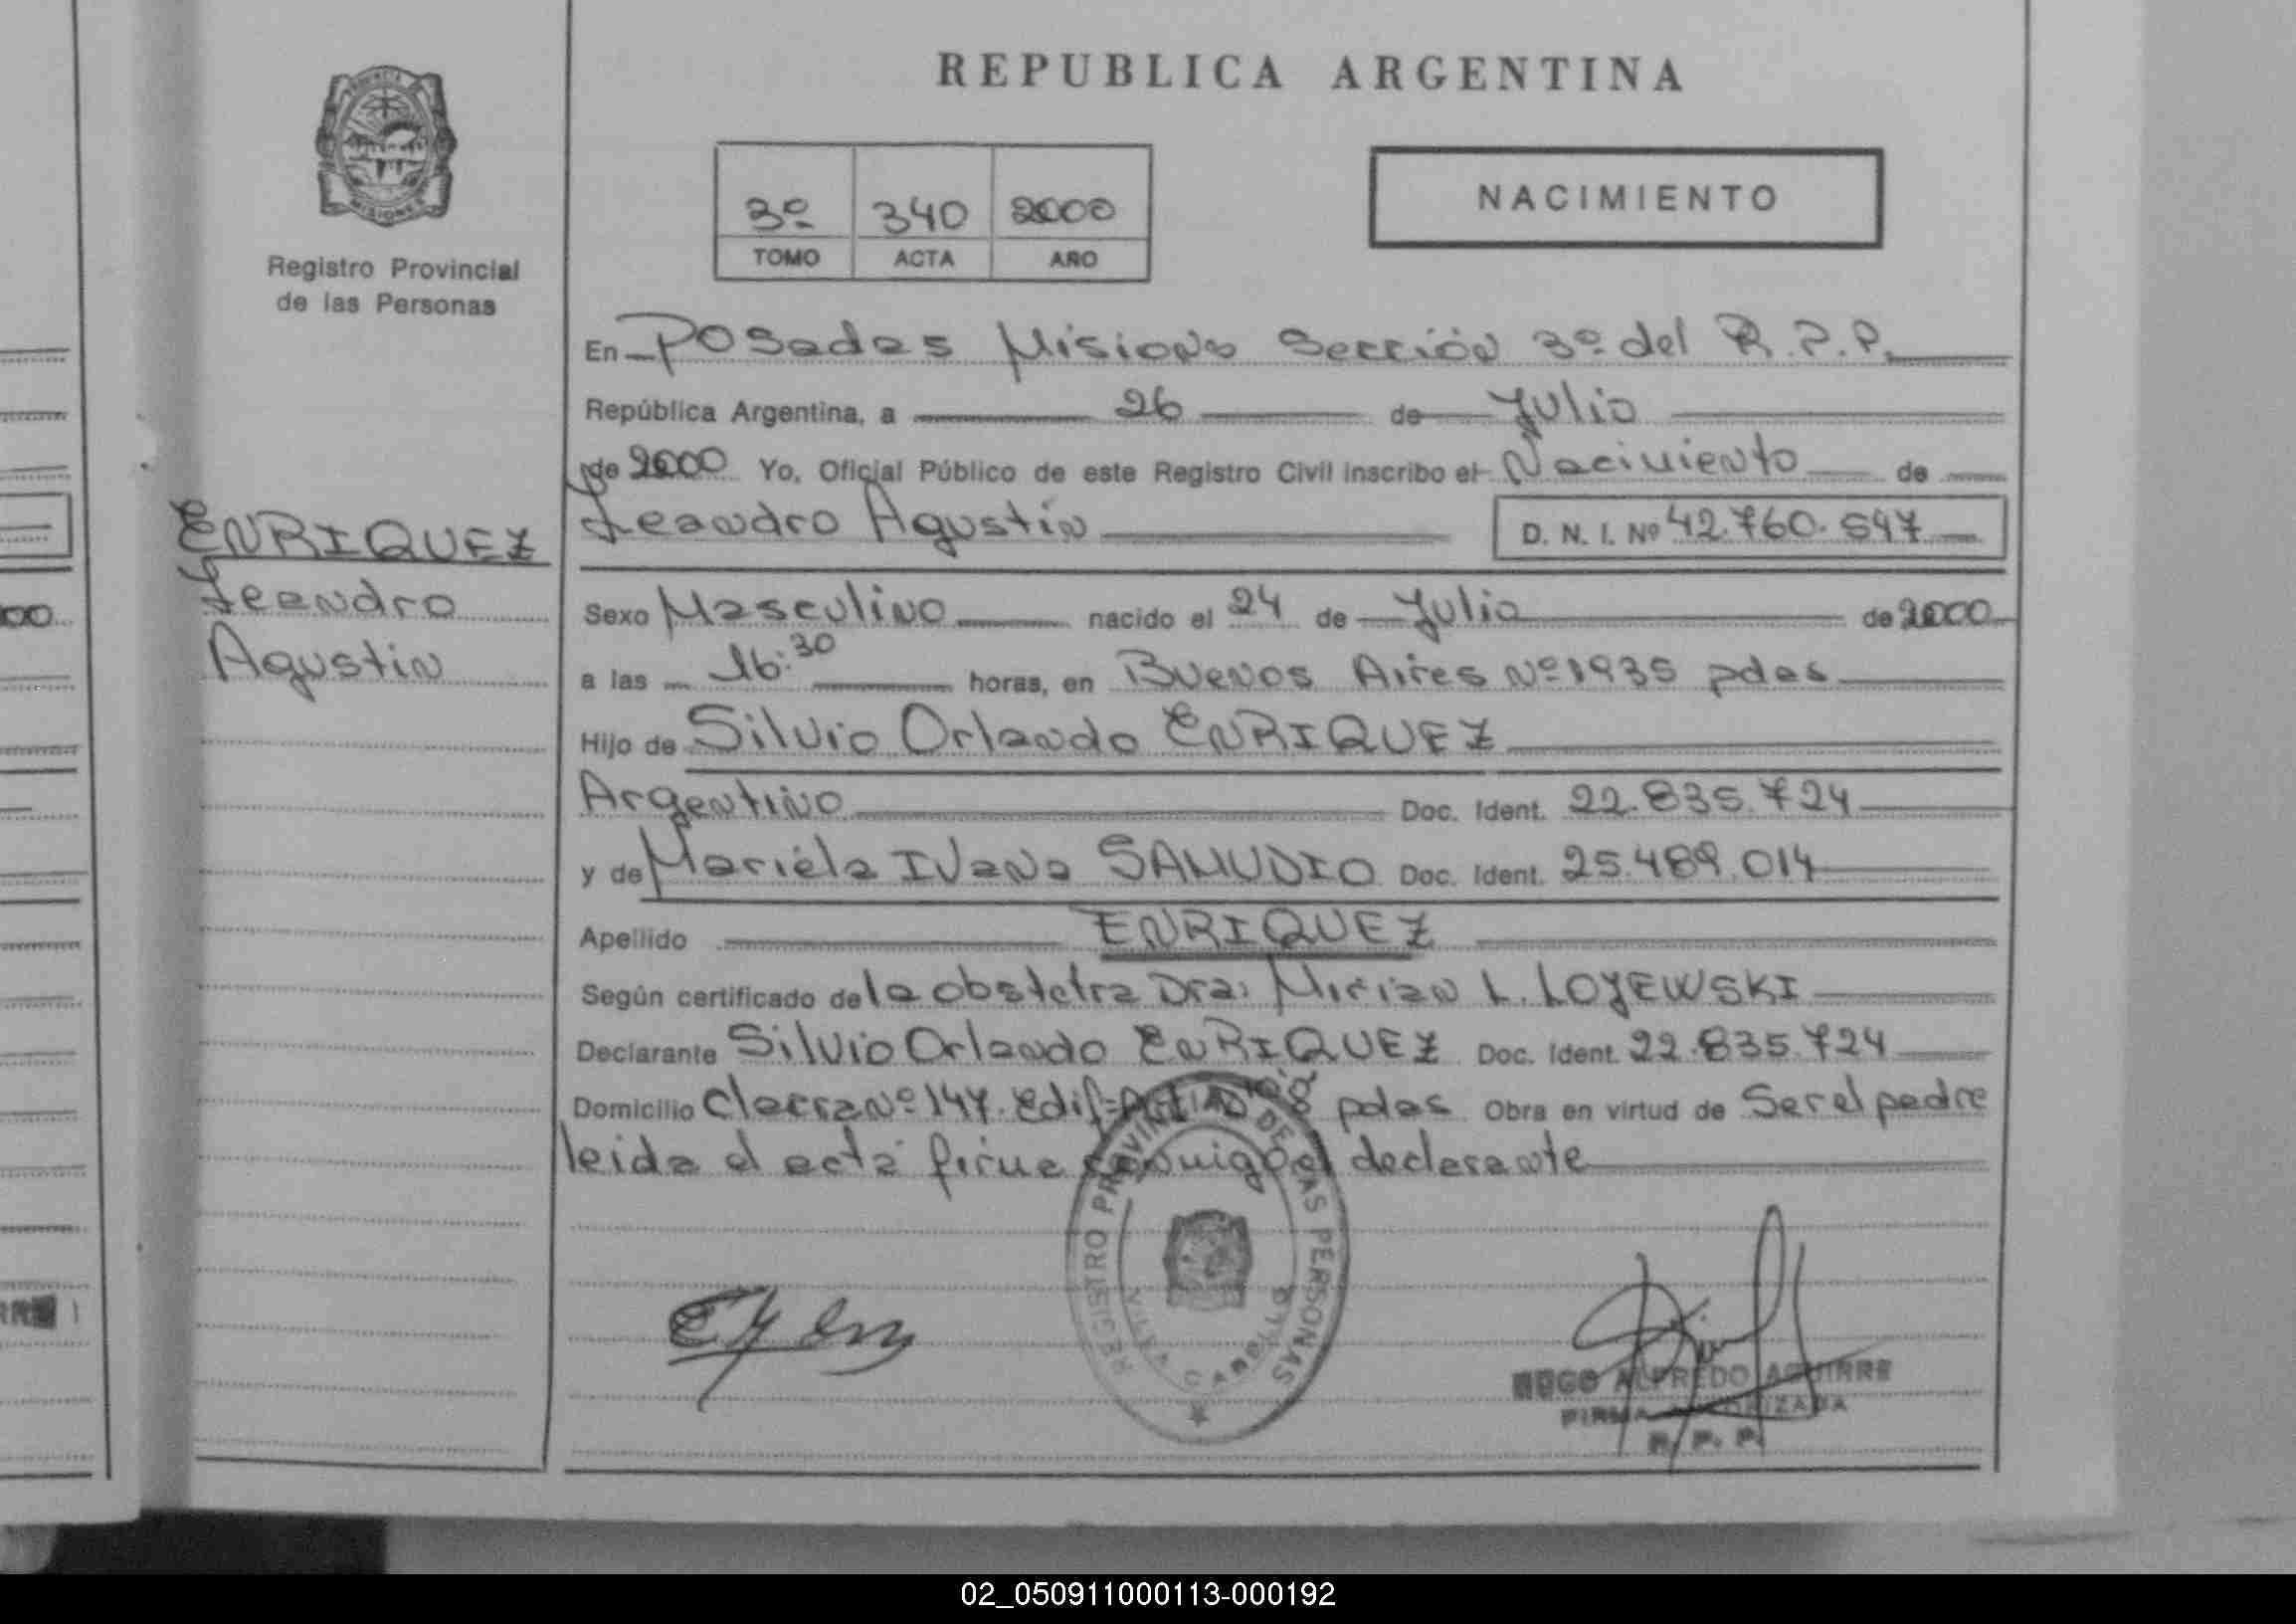 REPUBLICA ARGENTINA
PROVINCIA
MISIONES
Registro Provincial
de las Personas
3º 340 2000
TOMO ACTA AÑO
NACIMIENTO
En Posadas Misiones Sección 3º del R.P.P.
República Argentina, a 26 de Julio
de 2000 Yo, Oficial Público de este Registro Civil inscribo el Nacimiento de
Leandro Agustin D. N. I. Nº 42.760.597
ENRIQUEZ
Leandro
Agustin
Sexo Masculino nacido el 24 de Julio de 2000
a las 16:30 horas, en Buenos Aires Nº 1935 pdas
Hijo de Silvio Orlando ENRIQUEZ
Argentino Doc. Ident. 22.835.724
y de Mariela Ivana SAMUDIO Doc. Ident. 25.489.014
Apellido ENRIQUEZ
Según certificado de la obstetra Dra: Mirian L. LOJEWSKI
Declarante Silvio Orlando ENRIQUEZ Doc. Ident. 22.835.724
Domicilio Nº 147 Edif= pdas Obra en virtud de Ser el padre
leida el acta firma conmigo el declarante
REGISTRO PROVINCIAL DE LAS PERSONAS
VILLA CABELLO
HUGO ALFREDO AGUIRRE
FIRMA AUTORIZADA
R. P. P.
02_050911000113-000192